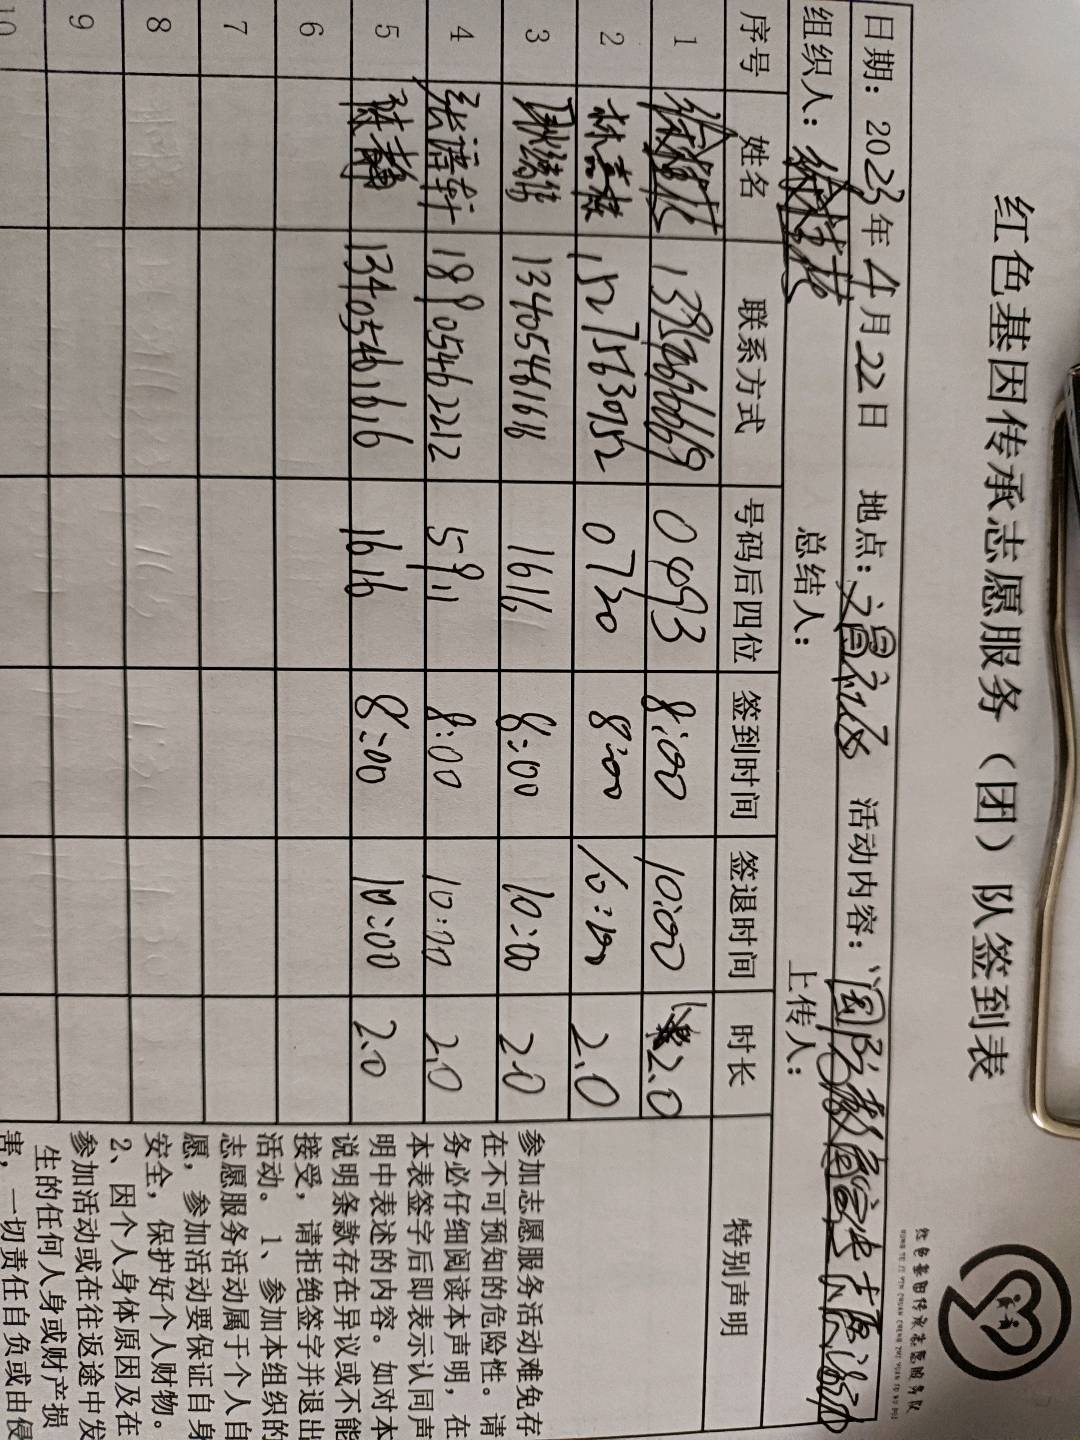 红色基因传承志愿服务队
红色基因传承志愿服务（团）队签到表
日期：2023年4月22日 地点： 活动内容：
组织人： 总结人： 上传人：
序号 姓名 联系方式 号码后四位 签到时间 签退时间 时长 特别声明
1 0493 8:00 10:00 2.0
2 15275630752 0720 8:00 10:00 2.0
3 13405461616 1616 8:00 10:00 2.0
4 18905462212 5911 8:00 10:00 2.0
5 13405461616 1616 8:00 10:00 2.0
6
7
8
9
10
参加志愿服务活动难免存
在不可预知的危险性。请
务必仔细阅读本声明，在
本表签字后即表示认同声
明中表述的内容。如对本
说明条款存在异议或不能
接受，请拒绝签字并退出
活动。1、参加本组织的
志愿服务活动属于个人自
愿，参加活动要保证自身
安全，保护好个人财物。
2、因个人身体原因及在
参加活动或在往返途中发
生的任何人身或财产损
害，一切责任自负或由侵